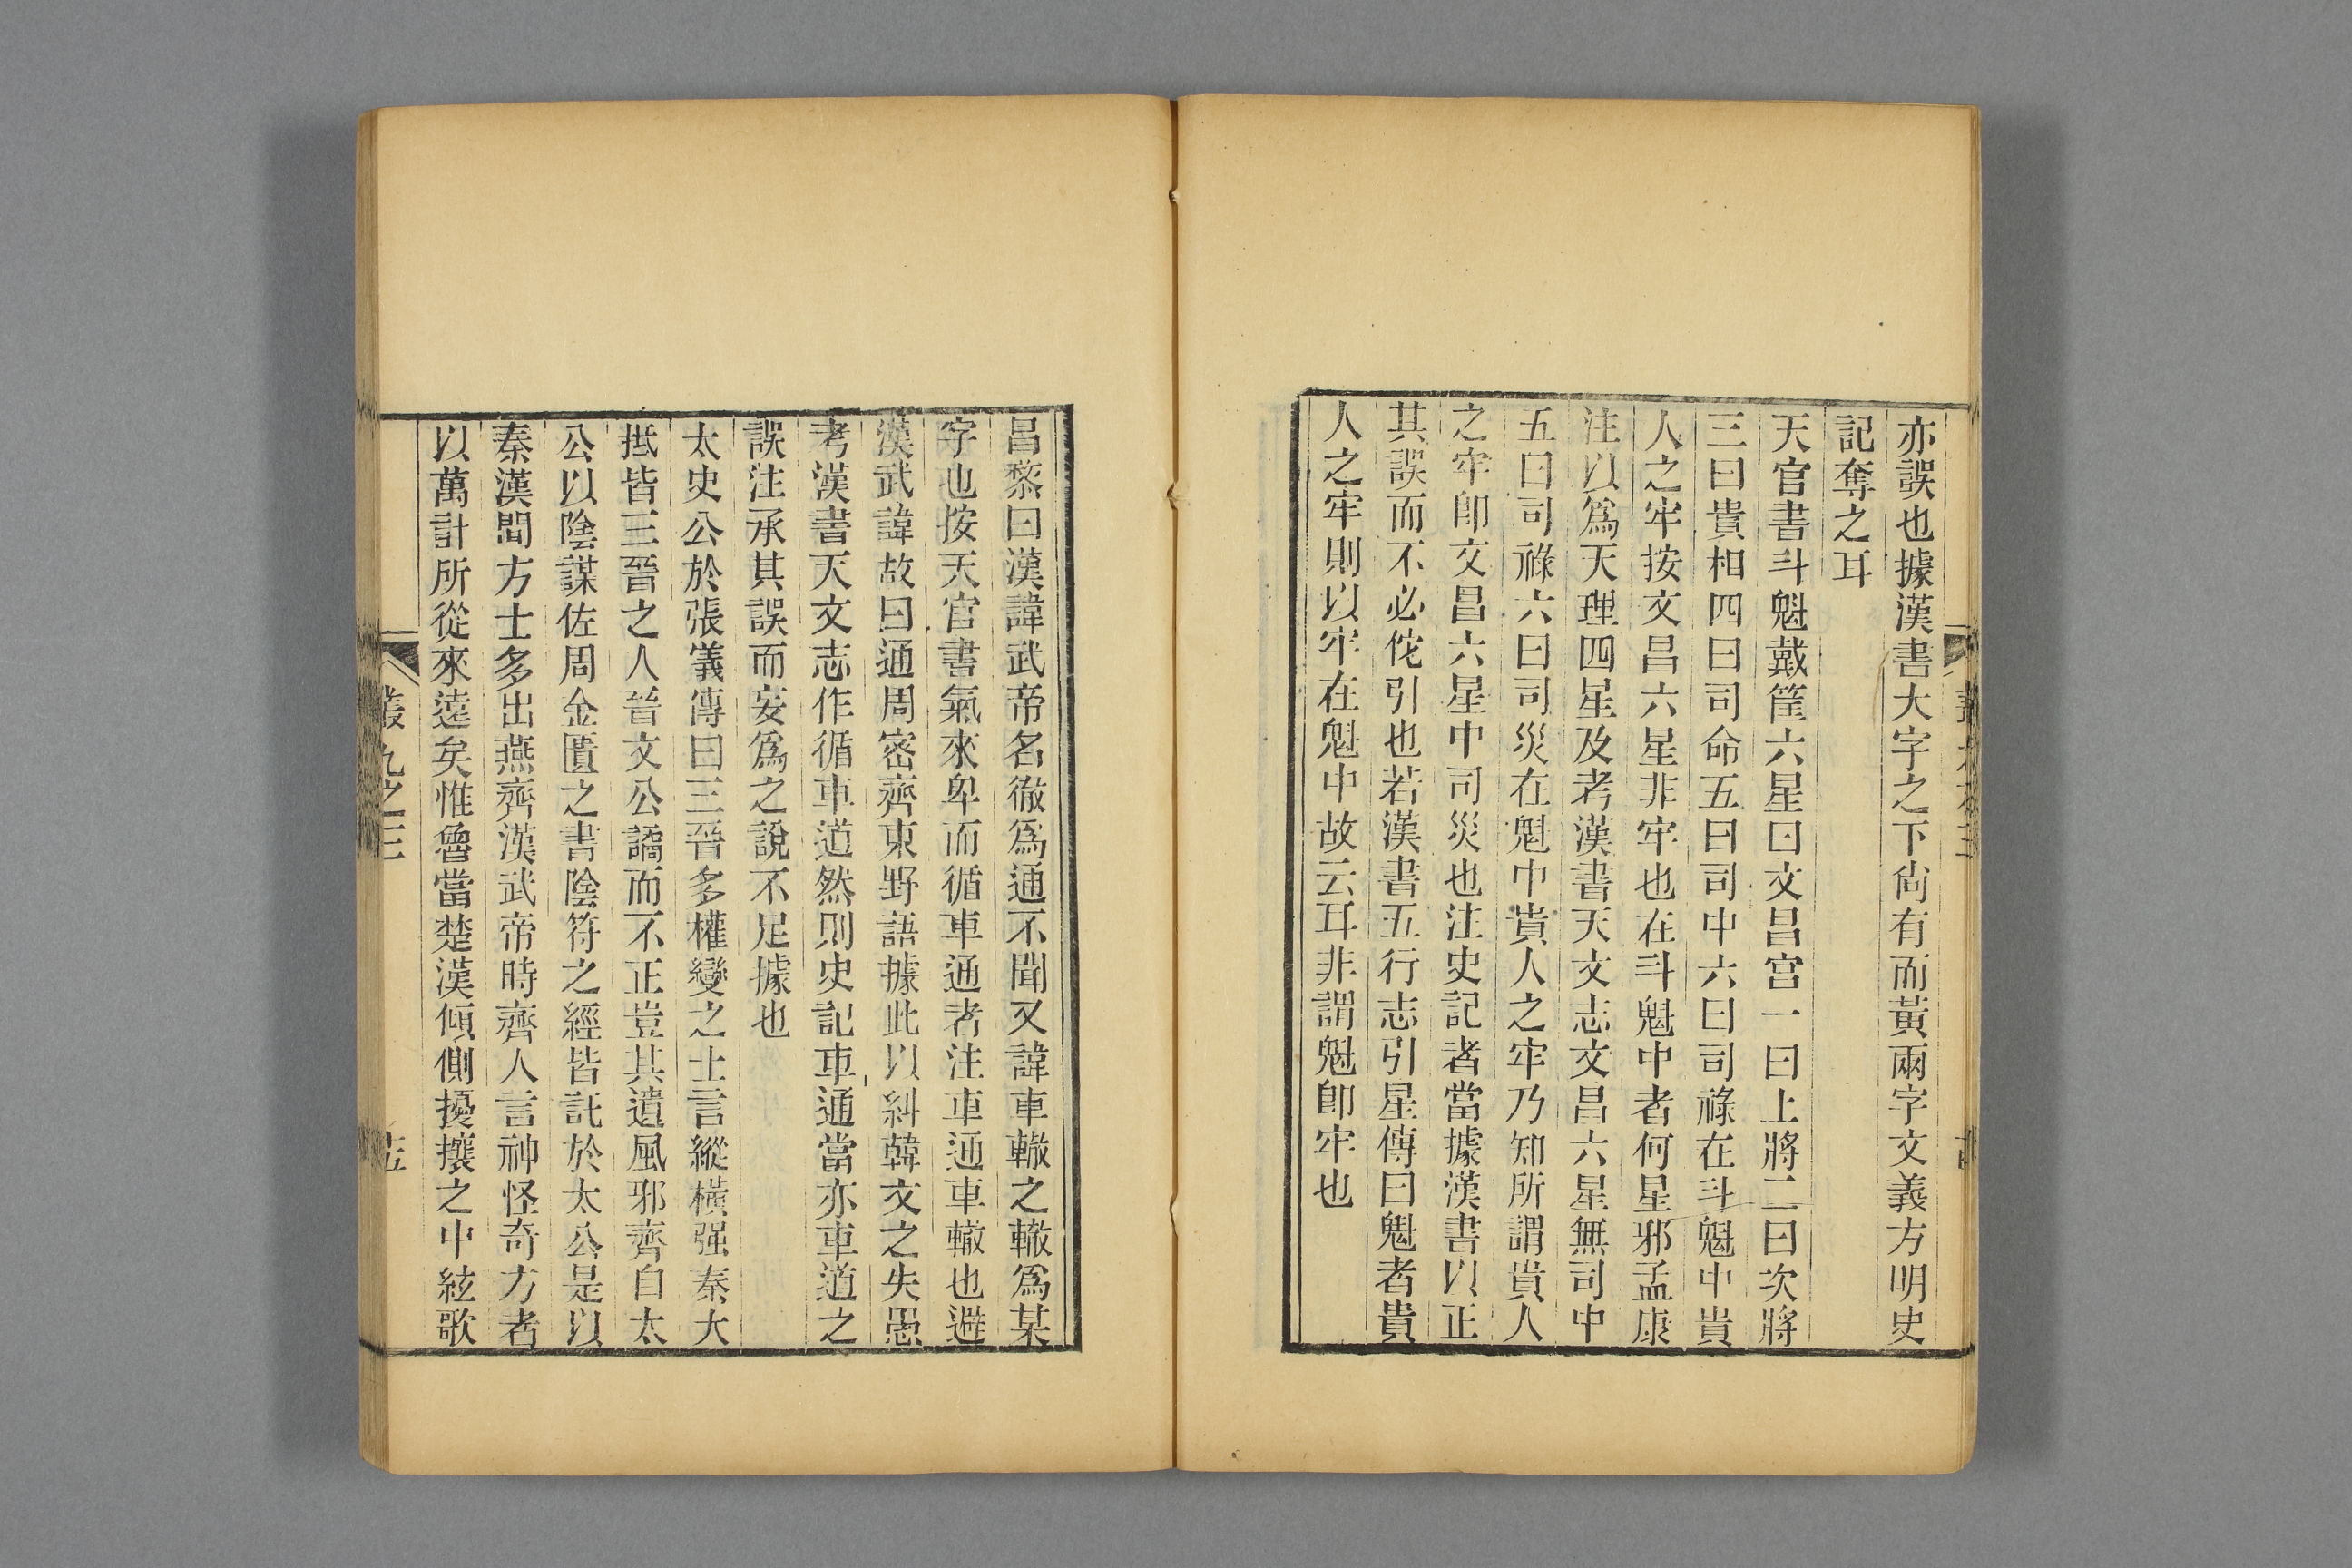 亦誤也據漢書大字之下尙有而黃兩字文義方明史
記奪之耳
天官書斗魁戴筐六星曰文昌宫一曰上將二曰次將
三曰貴相四曰司命五曰司中六曰司祿在斗魁中貴
人之牢按文昌六星非牢也在斗魁中者何星邪孟康
注以爲天理四星及考漢書天文志文昌六星無司中
五曰司祿六曰司災在魁中貴人之牢乃知所謂貴人
之牢卽文昌六星中司災也注史記者當據漢書以正
其誤而不必佗引也若漢書五行志引星傳曰魁者貴
人之牢則以牢在魁中故云耳非謂魁卽牢也
昌黎曰漢諱武帝名徹爲通不聞又諱車轍之轍爲某
字也按天官書氣來卑而循車通者注車通車轍也避
漢武諱故曰通周密齊東野語據此以糾韓文之失愚
考漢書天文志作循車道然則史記車通當亦車道之
誤注承其誤而妄爲之說不足據也
太史公於張儀傳曰三晉多權變之士言縱橫强秦大
抵皆三晉之人晉文公譎而不正豈其遺風邪齊自太
公以陰謀佐周金匱之書陰符之經皆託於太公是以
秦漢間方士多出燕齊漢武帝時齊人言神怪奇方者
以萬計所從來遠矣惟魯當楚漢傾側擾攘之中絃歌
叢九之三
十五